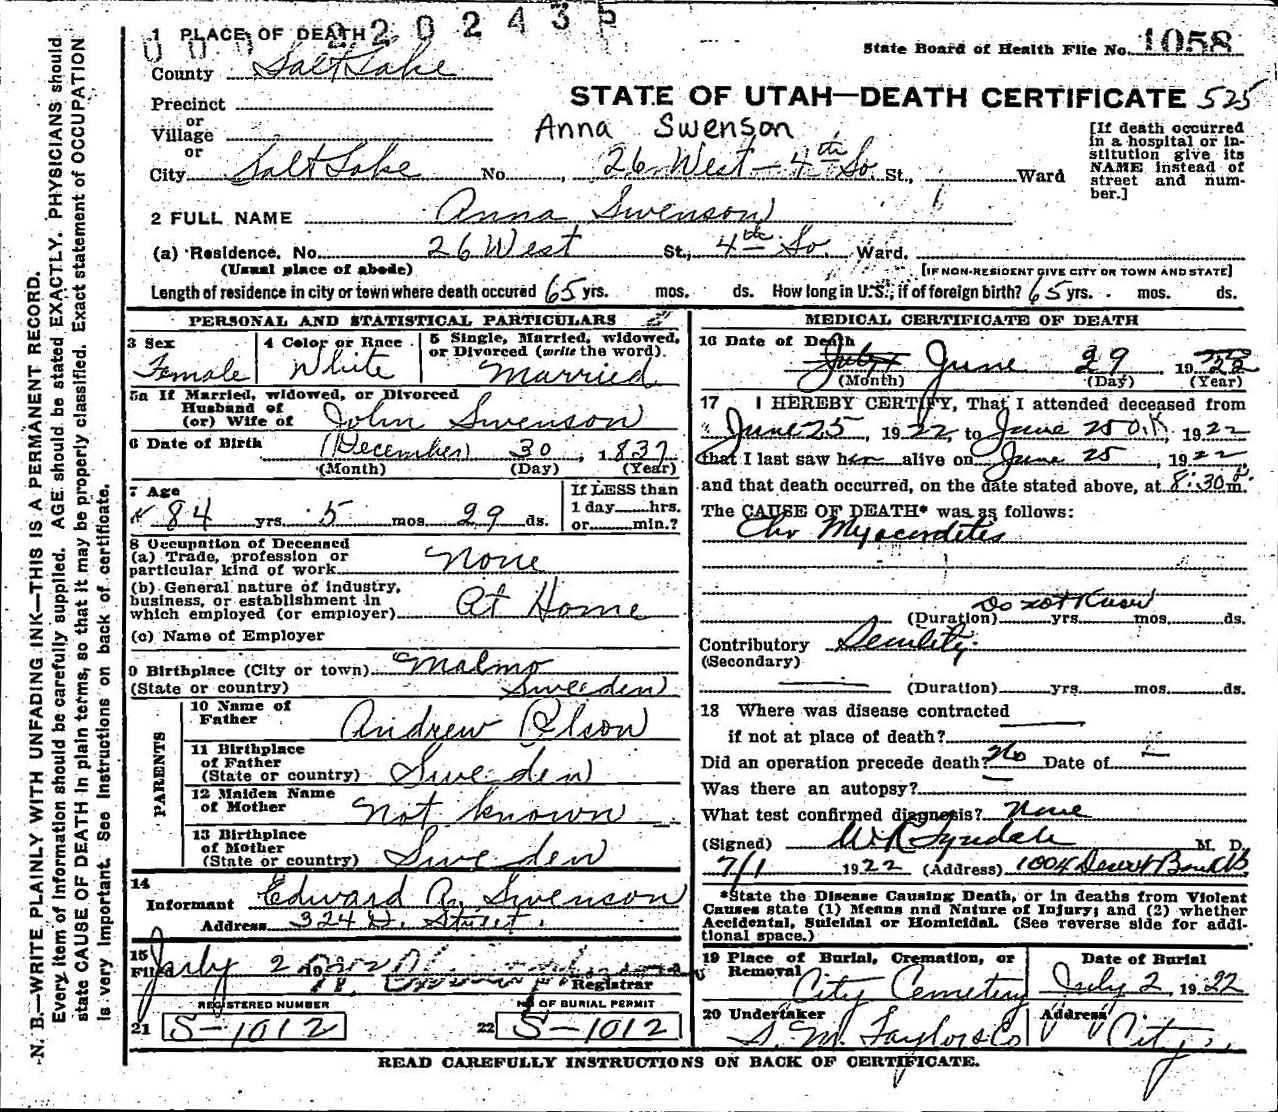 0002202435
1 PLACE OF DEATH
State Board of Health File No. 1058
County Salt Lake
STATE OF UTAH—DEATH CERTIFICATE 525
Precinct
or
Village
Anna Swenson
or
City Salt Lake No. 26 West - 4th So. St., Ward
[If death occurred
in a hospital or in-
stitution give its
NAME instead of
street and num-
ber.]
2 FULL NAME Anna Swenson
(a) Residence. No. 26 West St., 4th So. Ward.
(Usual place of abode) [IF NON-RESIDENT GIVE CITY OR TOWN AND STATE]
Length of residence in city or town where death occured 65 yrs. mos. ds. How long in U.S., if of foreign birth? 65 yrs. mos. ds.
PERSONAL AND STATISTICAL PARTICULARS
3 Sex
Female
4 Color or Race
White
5 Single, Married, widowed,
or Divorced (write the word).
Married
5a If Married, widowed, or Divorced
Husband of
(or) Wife of John Swenson
6 Date of Birth December 30, 1837
(Month) (Day) (Year)
7 Age
84 yrs. 5 mos. 29 ds.
If LESS than
1 day____hrs.
or____min.?
8 Occupation of Deceased
(a) Trade, profession or
particular kind of work None
(b) General nature of industry,
business, or establishment in
which employed (or employer) At Home
(c) Name of Employer
9 Birthplace (City or town) Malmo
(State or country) Sweeden
PARENTS
10 Name of
Father Andrew Olson
11 Birthplace
of Father
(State or country) Sweden
12 Maiden Name
of Mother Not known
13 Birthplace
of Mother
(State or country) Sweden
14
Informant Edward A. Swenson
Address 324 D. Street.
15
Filed July 2 19
Registrar
REGISTERED NUMBER
21 S-1012
NO OF BURIAL PERMIT
22 S-1012
MEDICAL CERTIFICATE OF DEATH
16 Date of Death
July June 29 1922
(Month) (Day) (Year)
17 I HEREBY CERTIFY, That I attended deceased from
June 25, 1922, to June 25 O.K, 1922
that I last saw her alive on June 25, 1922
and that death occurred, on the date stated above, at 8:30 P.m.
The CAUSE OF DEATH* was as follows:
Chr Myocarditis
Do not Know
(Duration) yrs. mos. ds.
Contributory Senility.
(Secondary)
(Duration) yrs. mos. ds.
18 Where was disease contracted
if not at place of death?
Did an operation precede death? No Date of —
Was there an autopsy?
What test confirmed diagnosis? None
(Signed) W R Tyndale M. D.
7/1 1922 (Address) 1004 Deseret Bank B
*State the Disease Causing Death, or in deaths from Violent
Causes state (1) Means and Nature of Injury; and (2) whether
Accidental, Suicidal or Homicidal. (See reverse side for addi-
tional space.)
19 Place of Burial, Cremation, or
Removal
City Cemetery
Date of Burial
July 2 1922
20 Undertaker
S. M. Taylor & Co
Address
City.
READ CAREFULLY INSTRUCTIONS ON BACK OF CERTIFICATE.
N. B.—WRITE PLAINLY WITH UNFADING INK—THIS IS A PERMANENT RECORD.
Every item of information should be carefully supplied. AGE should be stated EXACTLY. PHYSICIANS should
state CAUSE OF DEATH in plain terms, so that it may be properly classified. Exact statement of OCCUPATION
is very important. See instructions on back of certificate.